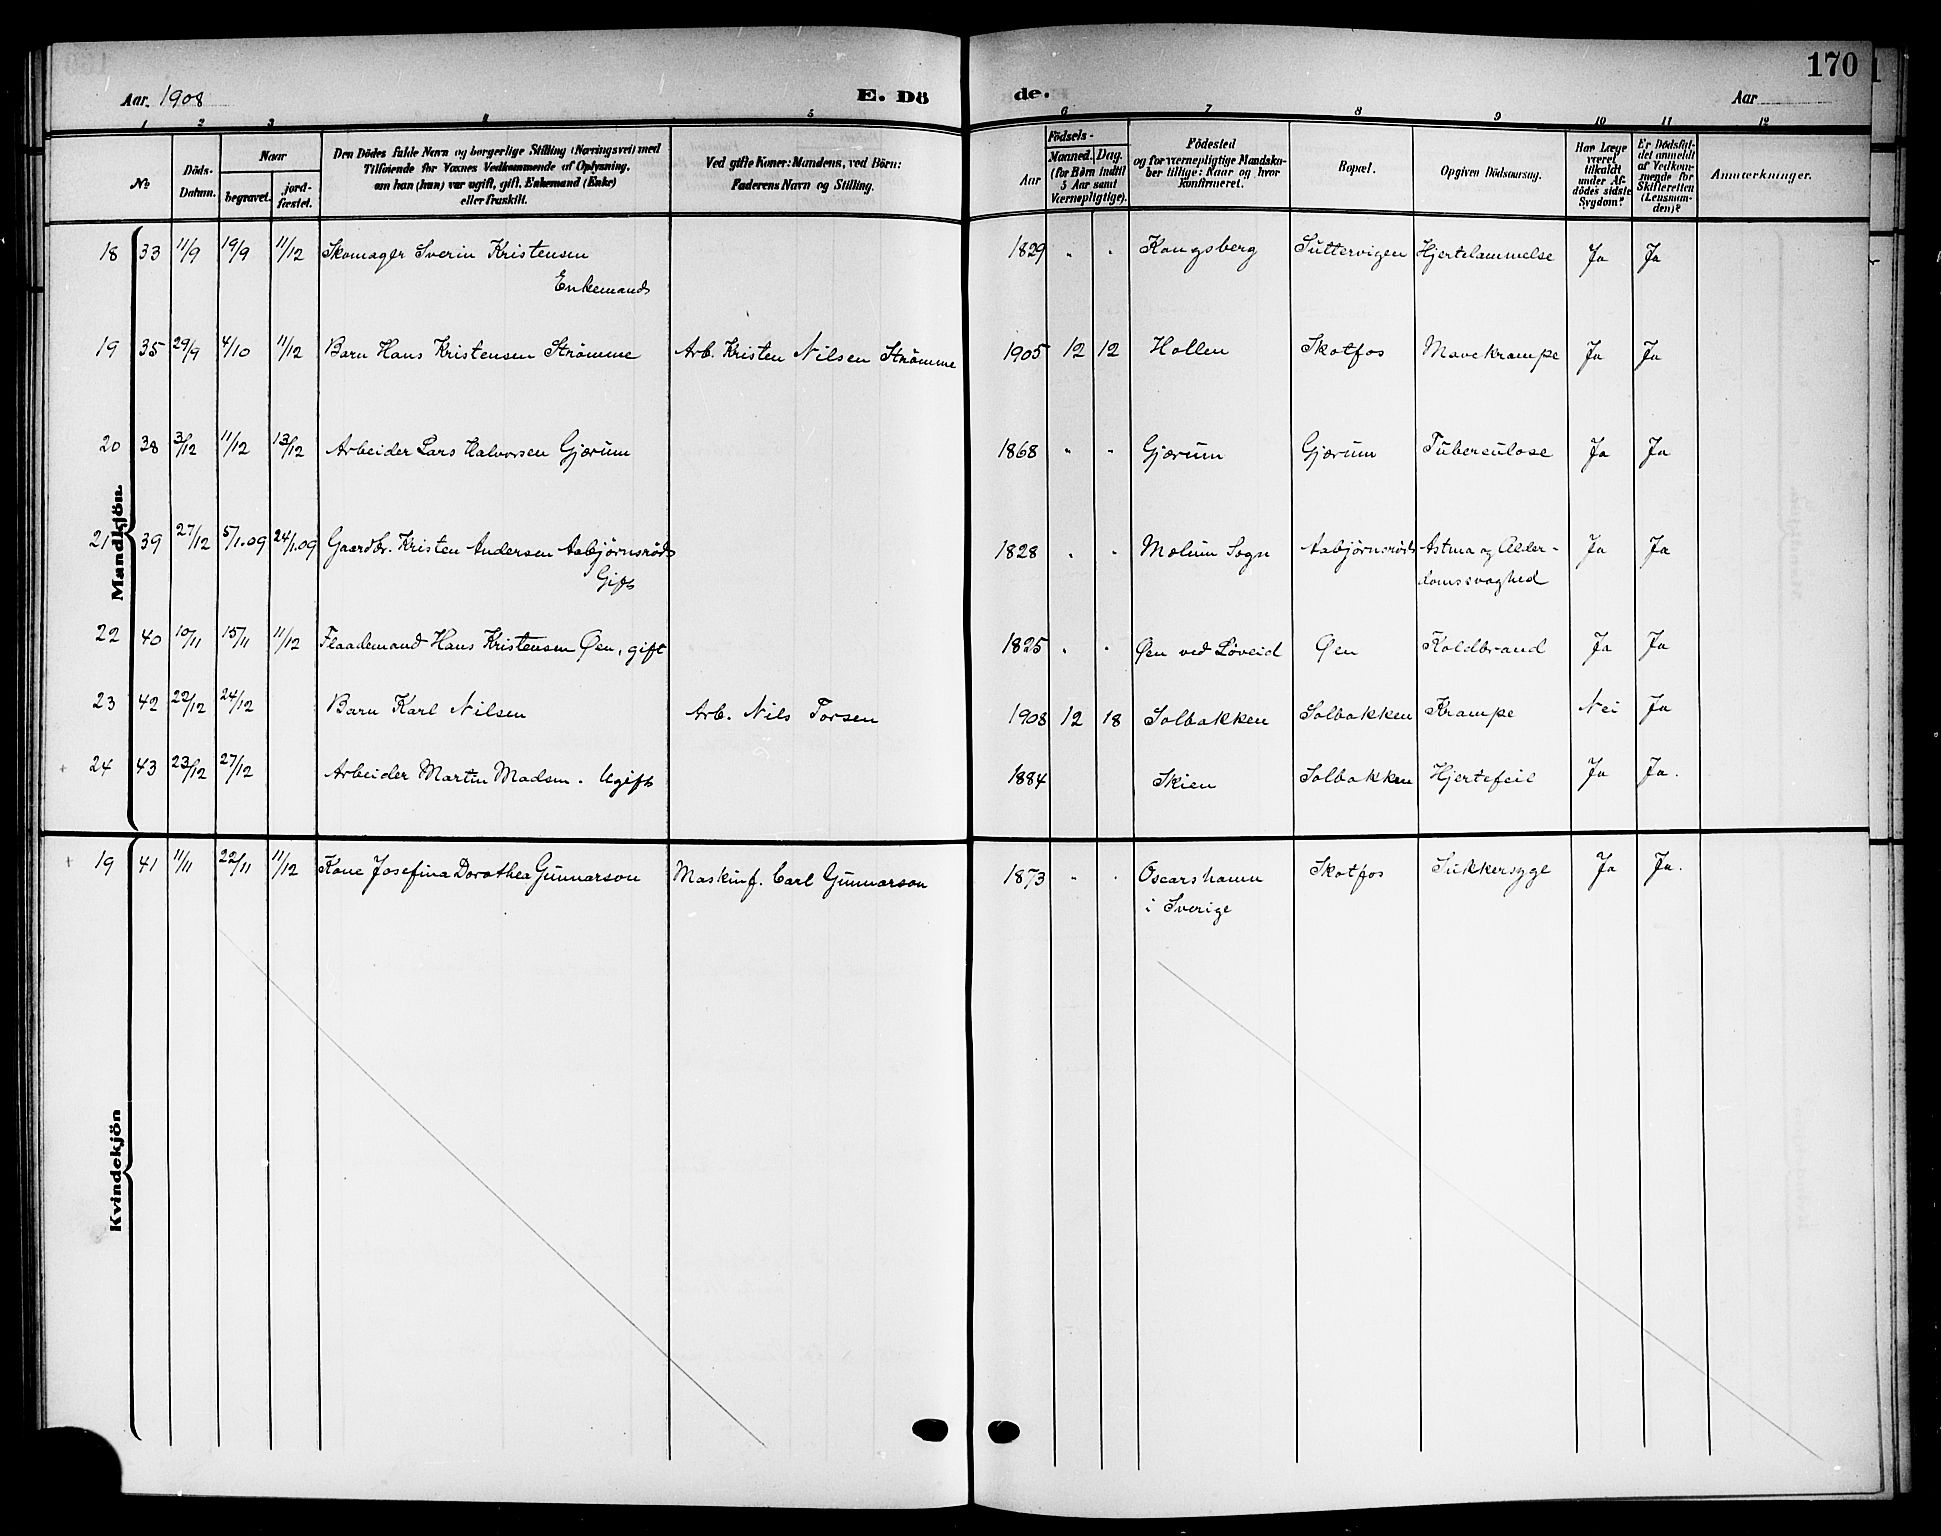 170
Aar. 1908
E. Dö
de.
Aar
1 2 3 4 5 6 7 8 9 10 11 12
No
Döds-
Datum.
Naar
begravet.
jord-
fæstet.
Den Dödes fulde Navn og borgerlige Stilling (Næringsvei) med
Tilföiende for Voxnes Vedkommende af Oplysning,
om han (hun) var ugift, gift, Enkemand (Enke)
eller fraskilt.
Ved gifte Koner: Mandens, ved Börn:
Faderens Navn og Stilling.
Aar
Födsels-
Maaned. Dag.
(for Börn indtil
5 Aar samt
Værnepligtige).
Födested
og for værnepligtige Mandska-
ber tillige: Naar og hvor
konfirmeret.
Bopæl.
Opgiven Dödsaarsag.
Har Læge
været
tilkaldt
under Af-
dödes sidste
Sygdom?
Er Dödsfal-
det anmeldt
af Vedkom-
mende for
Skifteretten
(Lensman-
den)?
Anmærkninger.
Mandkjön.
18 33 11/9 19/9 11/12 Skomager Sverin Kristensen 1829 " " Kongsberg Suttervigen Hjertelammelse Ja Ja
Enkemand
19 35 29/9 4/10 11/12 Barn Hans Kristensen Strömme Arb. Kristen Nilsen Strömme 1905 12 12 Hollen Skotfos Mavekrampe Ja Ja
20 38 3/12 11/12 13/12 Arbeider Lars Halvorsen Gjærum 1868 " " Gjærum Gjærum Tuberculose Ja Ja
21 39 27/12 5/1.09 24/1.09 Gaardbr. Kristen Andersen Asbjörnsröd 1828 " " Mælum Sogn Asbjörnsröd Astma og Alder-
Gift
domssvaghed Ja Ja
22 40 10/11 15/11 11/12 Flaademand Hans Kristensen Øen, gift 1825 " " Øen ved Løveid Øen Koldbrand Ja Ja
23 42 22/12 24/12 Barn Karl Nilsen Arb. Nils Torsen 1908 12 18 Solbakken Solbakken Krampe Nei Ja
+ 24 43 23/12 27/12 Arbeider Martin Madsen. Ugift 1884 Skien Solbakken Hjertefeil Ja Ja.
Kvindekjön
+ 19 41 11/11 22/11 11/12 Kone Josefina Dorothea Gunnarson Maskinf. Carl Gunnarson 1873 " " Oscarshamn Skotfos Sukkersyge Ja Ja.
i Sverige